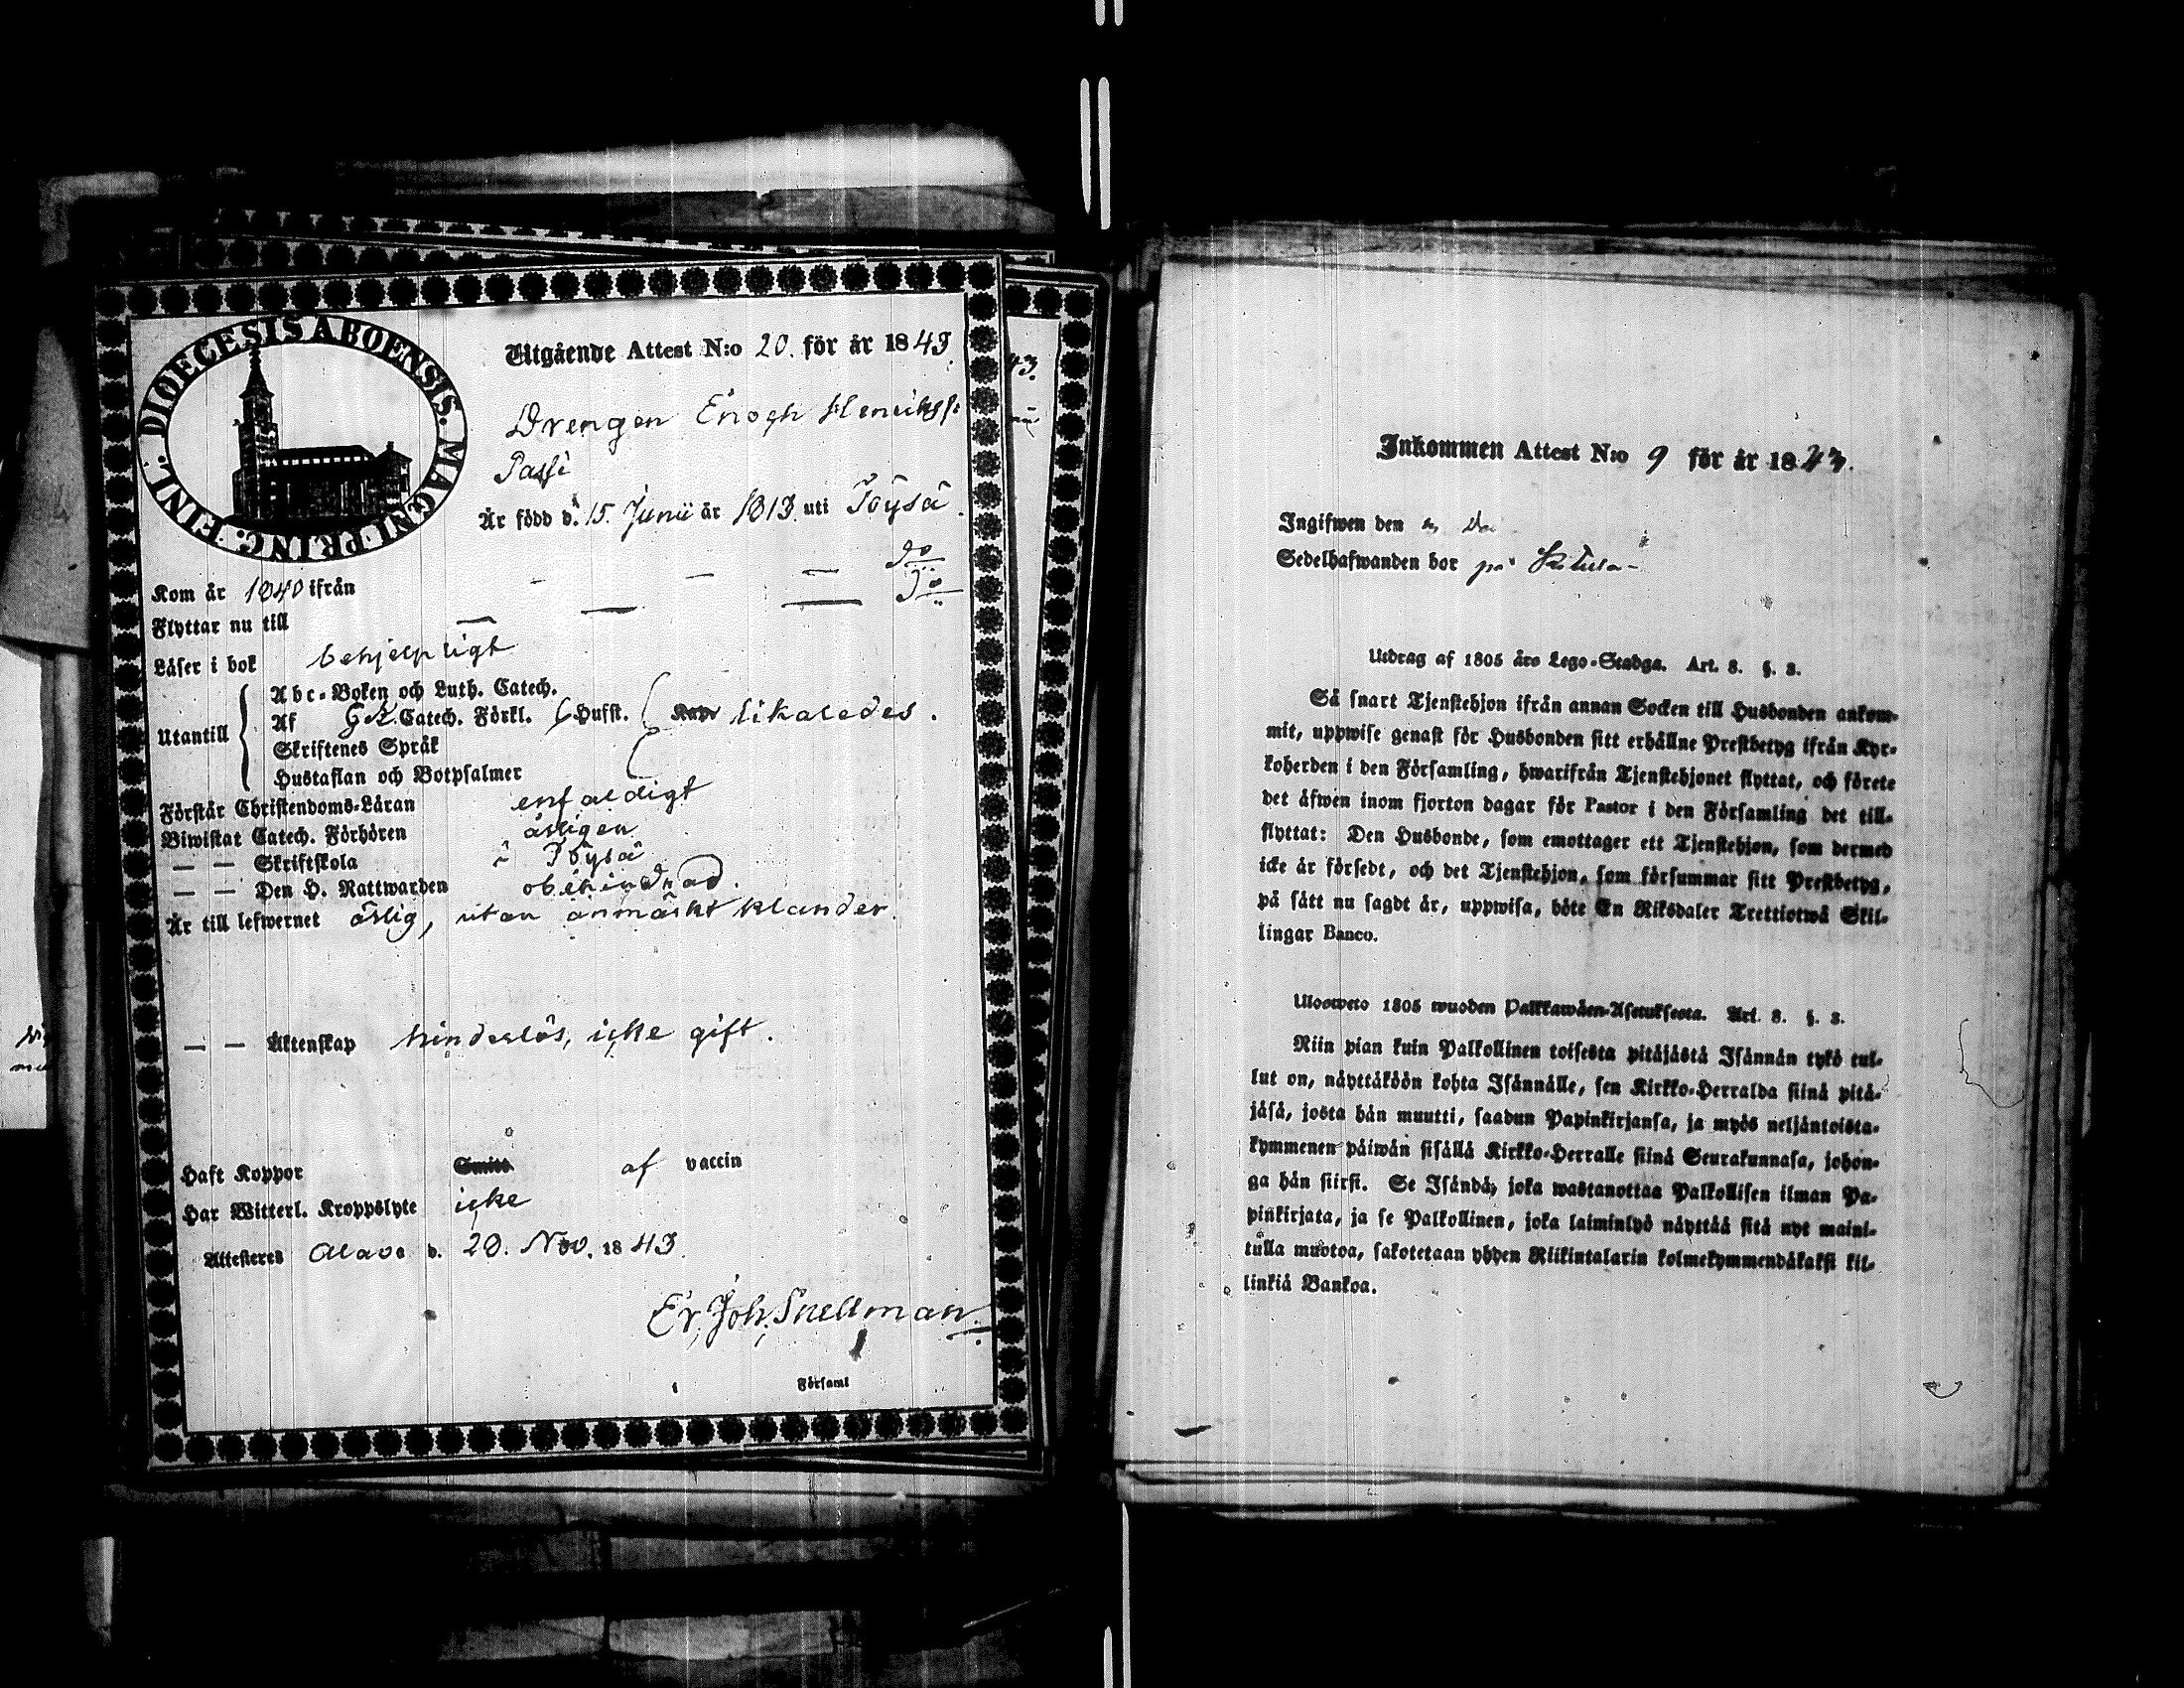 DIOECESIS ABOENSIS. MAGNI PRINC. FINL:
Utgående Attest N:o 20. för år 1843.
Drengen Enoch Henrikss:
Passi
Är född d. 15. Junii år 1813. uti Töysä.
Kom år 1840 ifrån — — — do
Flyttar nu till — — — do
Läser i bok behjelpligt
Utantill
Abc-Boken och Luth. Catech.
Af G.K. Catech. Förkl. 6 Hufst. likaledes.
Skriftenes Språk
Hustaflan och Botpsalmer
Förstår Christendoms-Läran enfaldigt
Biwistat Catech. Förhören årligen
— — Skriftskola i Töysä
— — Den H. Nattwarden obehindrad.
Är till lefwernet ärlig, utan anmärkt klander.
— — Äktenskap hinderlös, icke gift.
Haft Koppor af vaccin
Har Witterl. Kroppslyte icke
Attesteres Alavo d. 20. Nov. 1843.
Er. Joh. Snellman
i Församl
43.
Inkommen Attest N:o 9 för år 1843.
Ingifwen den
Sedelhafwanden bor på
Utdrag af 1805 års Lego-Stadga. Art. 8. §. 3.
Så snart Tjenstehjon ifrån annan Socken till Husbonden ankom-
mit, uppwise genast för Husbonden sitt erhållne Prestbetyg ifrån Kyr-
koherden i den Församling, hwarifrån Tjenstehjonet flyttat, och förete
det äfwen inom fjorton dagar för Pastor i den Församling det till-
flyttat: Den Husbonde, som emottager ett Tjenstehjon, som dermed
icke är försedt, och det Tjenstehjon, som försummar sitt Prestbetyg,
på sätt nu sagdt är, uppwisa, böte En Riksdaler Trettiotwå Skil-
lingar Banco.
Uloswето 1805 wuoden Palkkawäen-Asetuksesta. Art. 8. §. 3.
Niin pian kuin Palkollinen toisesta pitäjästä Isännän tykö tul-
lut on, näyttäköön kohta Isännälle, sen Kirkko-Herralda siinä pitä-
jäsä, josta hän muutti, saadun Papinkirjansa, ja myös neljäntoista-
kymmenen päiwän sisällä Kirkko-Herralle siinä Seurakunnasa, johon-
ga hän siirsi. Se Isändä, joka wastanottaa Palkollisen ilman Pa-
pinkirjata, ja se Palkollinen, joka laiminlyö näyttää sitä nyt maini-
tulla muotoa, sakotetaan yhden Riikintalarin kolmekymmendäkaksi kil-
linkiä Bankoa.